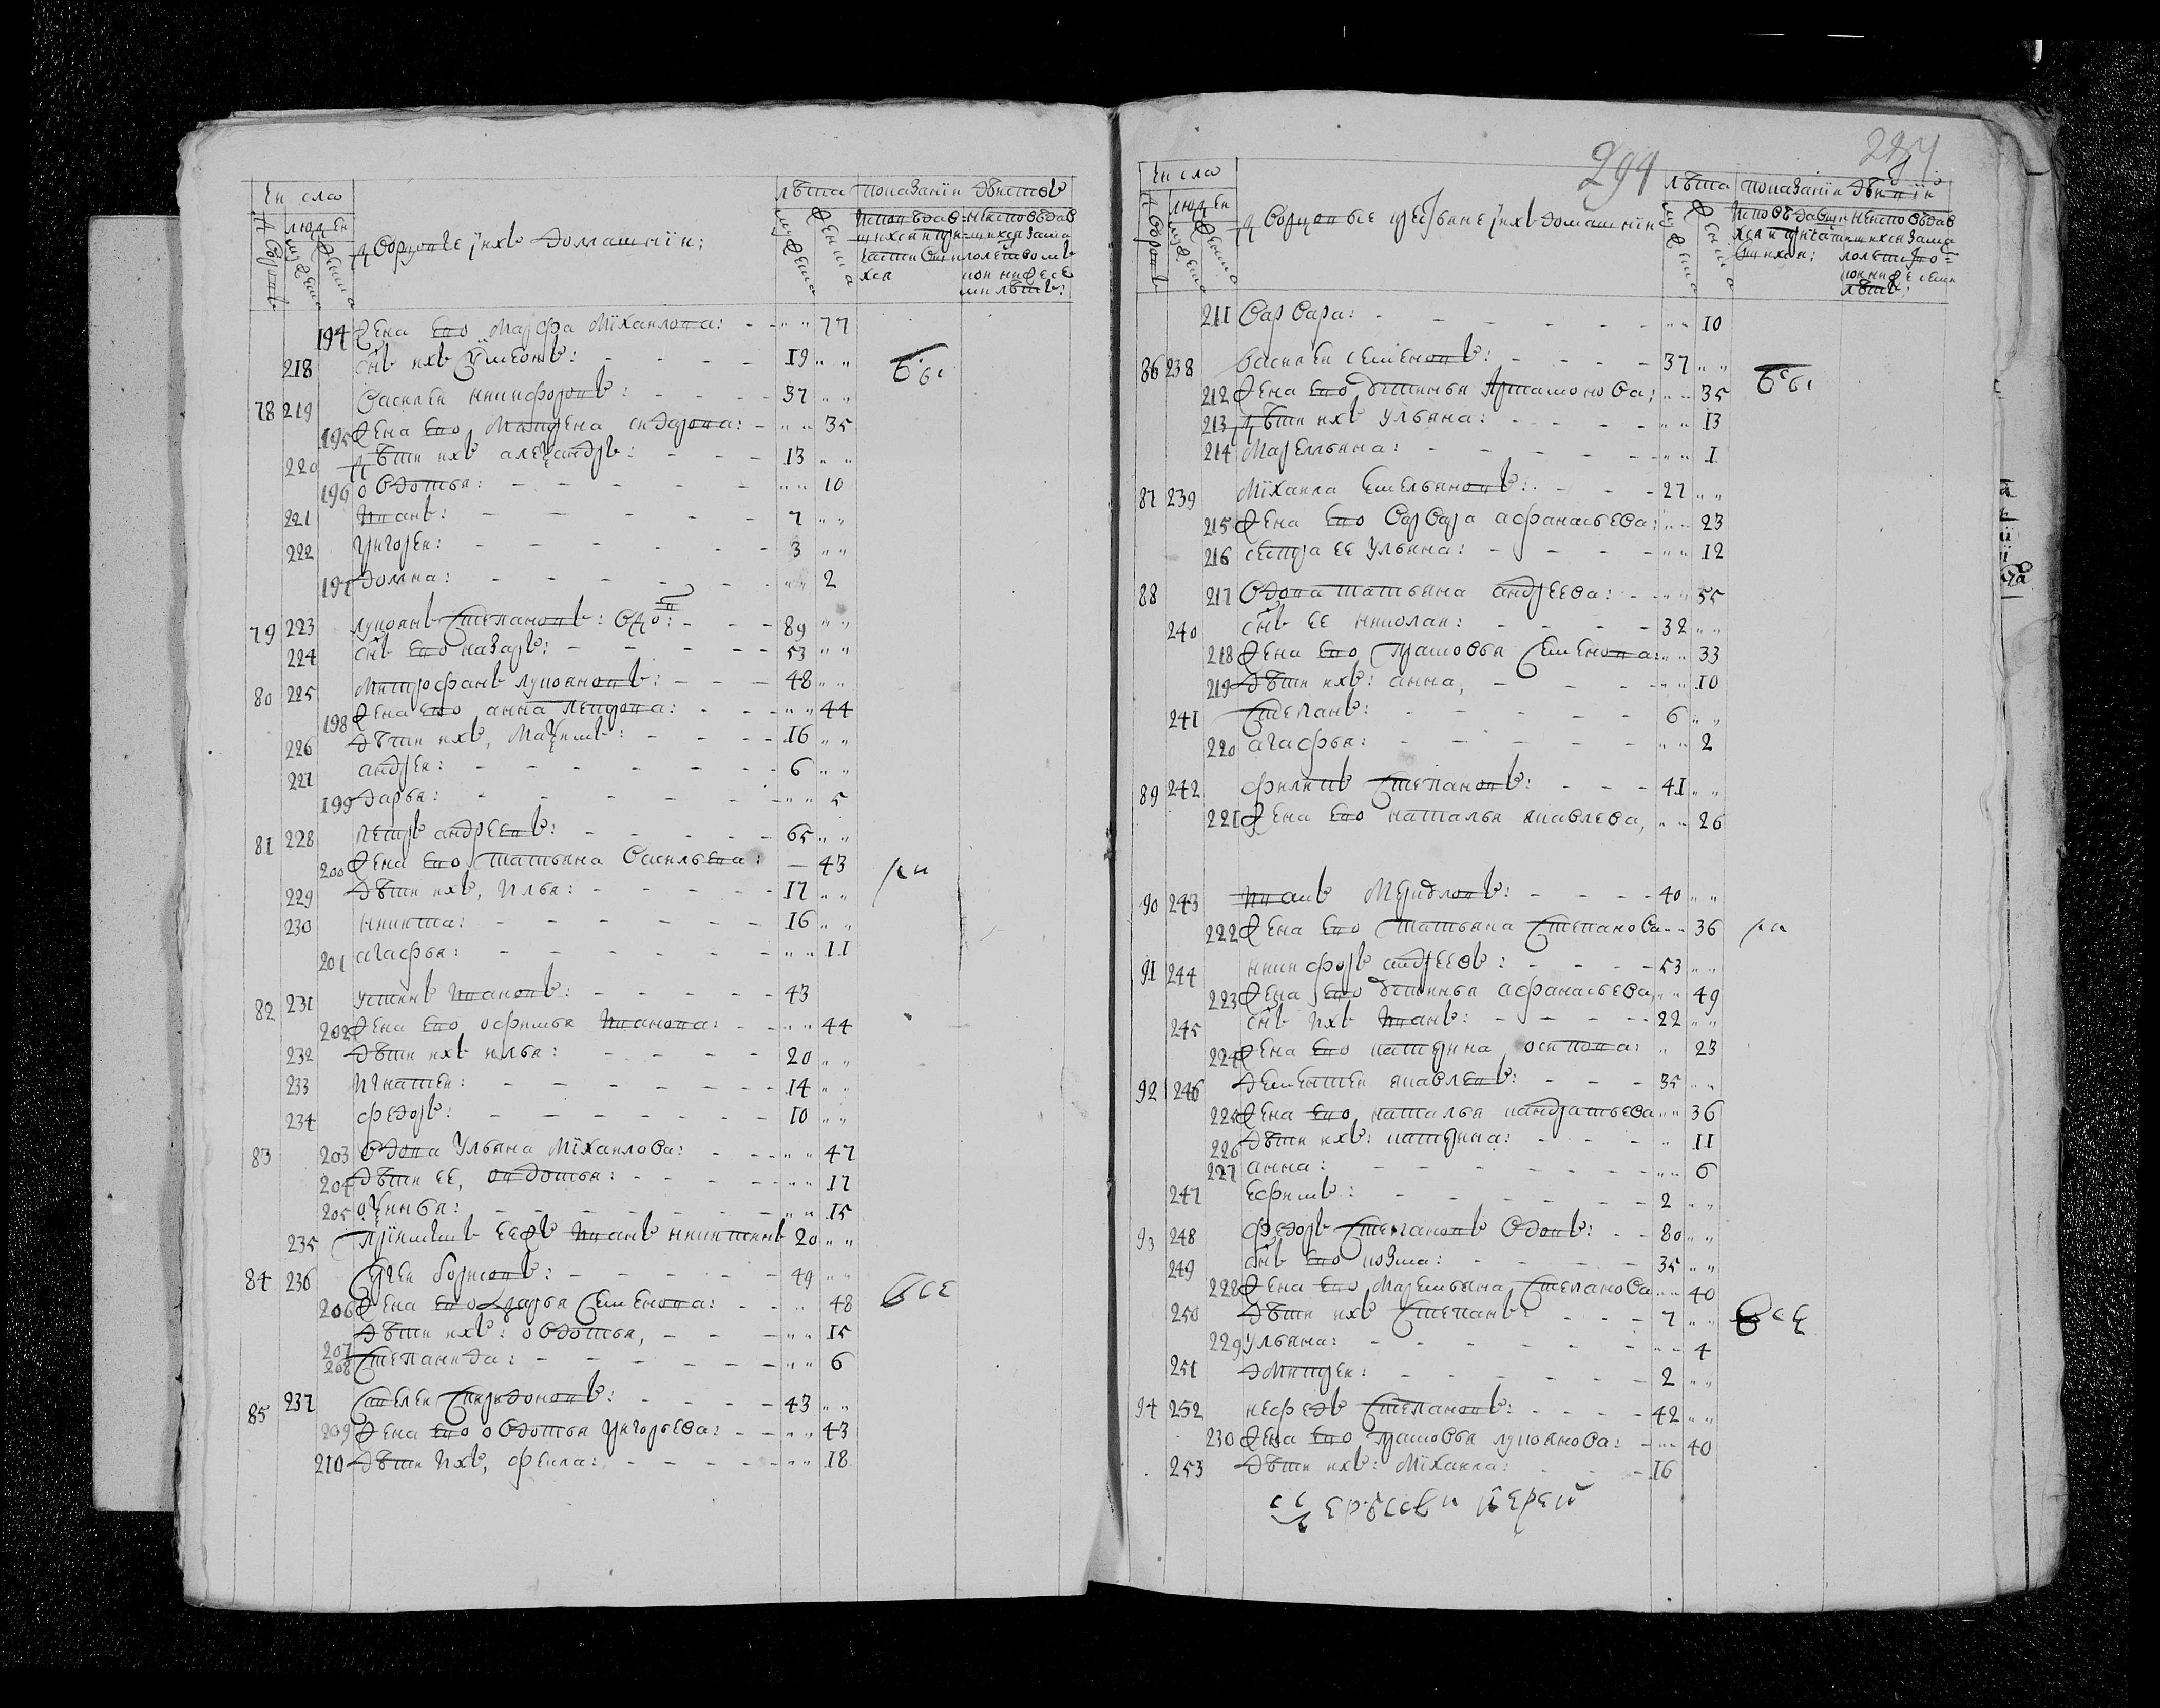 Числа
Дворовъ
людеи
мужеска
женска
Дворовые и ихъ домашнии:
лѣта
мужеска
женска
показании дѣиствъ
исповѣдав
шихся и при
частивши
хся
неисповѣдав
шихся за ма
лолетвомъ
194 жена ево Марфа Мïхаилова: 77
218 сынъ ихъ Симеонъ: 19
78 219 Василеи никифоровъ: 37
195 жена ево Матрена сидарова: 35
220 дѣти ихъ александръ: 13
196 овдотья: 10
221 иванъ: 7
222 григореи: 3
197 домна: 2
79 223 лукоянъ степановъ: вдо: 89
224 сынъ ево назаръ: 53
80 225 Митрофанъ лукояновъ: 48
198 жена ево анна петрова: 44
226 дѣти ихъ, Маѯимъ: 16
227 андреи: 6
199 дарья: 5
81 228 петръ андреевъ: 65
200 жена ево татьяна васильева: 43
229 дѣти ихъ, илья: 17
230 никита: 16
201 агафья: 11
82 231 устинъ ивановъ: 43
202 жена ево офимья иванова: 44
232 дѣти ихъ илья: 20
233 игнатеи: 14
234 федоръ: 10
83 203 вдова ульяна Мïхаилова: 47
204 дѣти ее, овдотья: 17
205 оѯинья: 15
235 приимышъ ееже иванъ никитинъ 20
84 236 сергеи борисовъ: 49
206 жена ево дарья семенова: 48
207 дѣти ихъ: овдотья, 15
208 степанида: 6
85 237 савелеи спиридоновъ: 43
209 жена ево овдотья григорьева: 43
210 дѣти ихъ, фекла: 18
294
Числа
Дворовъ
людеи
мужеска
женска
Дворовые крестьяне и ихъ домашнии
лѣта
мужеска
женска
показании дѣиствïи
исповѣдавши
хся и причасти
вшихся:
неисповѣдав
шихся за ма
лолетство
211 варвара: 10
86 238 василеи семеновъ: 37
212 жена ево устинья артамонова: 35
213 дѣти ихъ ульяна: 13
214 Маремьяна: 1
87 239 Мïхаила емельяновъ: 27
215 жена ево варвара афанасьева: 23
216 сестра ее ульяна: 12
88 217 вдова татьяна андреева: 55
240 сынъ ее николаи: 32
218 жена ево прасковья семенова: 33
219 дѣти ихъ: анна, 10
241 степанъ: 6
220 агафья: 2
89 242 филипъ степановъ: 41
221 жена ево наталья яковлева, 26
90 243 иванъ 40
222 жена ево татьяна степанова 36
91 244 никифоръ андреевъ: 53
223 жена ево устинья афанасьева, 49
245 сынъ ихъ иванъ: 22
224 жена ево катерина осипова: 23
92 246 дементеи яковлевъ: 35
225 жена ево, наталья кандратьева 36
226 дѣти ихъ: катерина: 11
227 анна: 6
247 ефимъ: 2
93 248 федоръ степановъ вдовъ: 80
249 сынъ ево козма: 35
228 жена ево, Маремьяна степанова 40
250 дѣти ихъ степанъ: 7
229 ульяна: 4
251 дмитреи: 2
94 252 нефедъ степановъ: 42
230 жена ево прасковья лукоянова: 40
253 дѣти ихъ: Мïхаила: 16
иерей